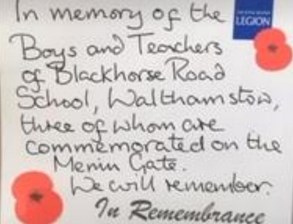 In memory of the
LEGION
Boys and Teachers
of Blackhorse Road
School, Walthamstow,
three of whom are
commemorated on the
Menin Gate.
We will remember.
In Remembrance